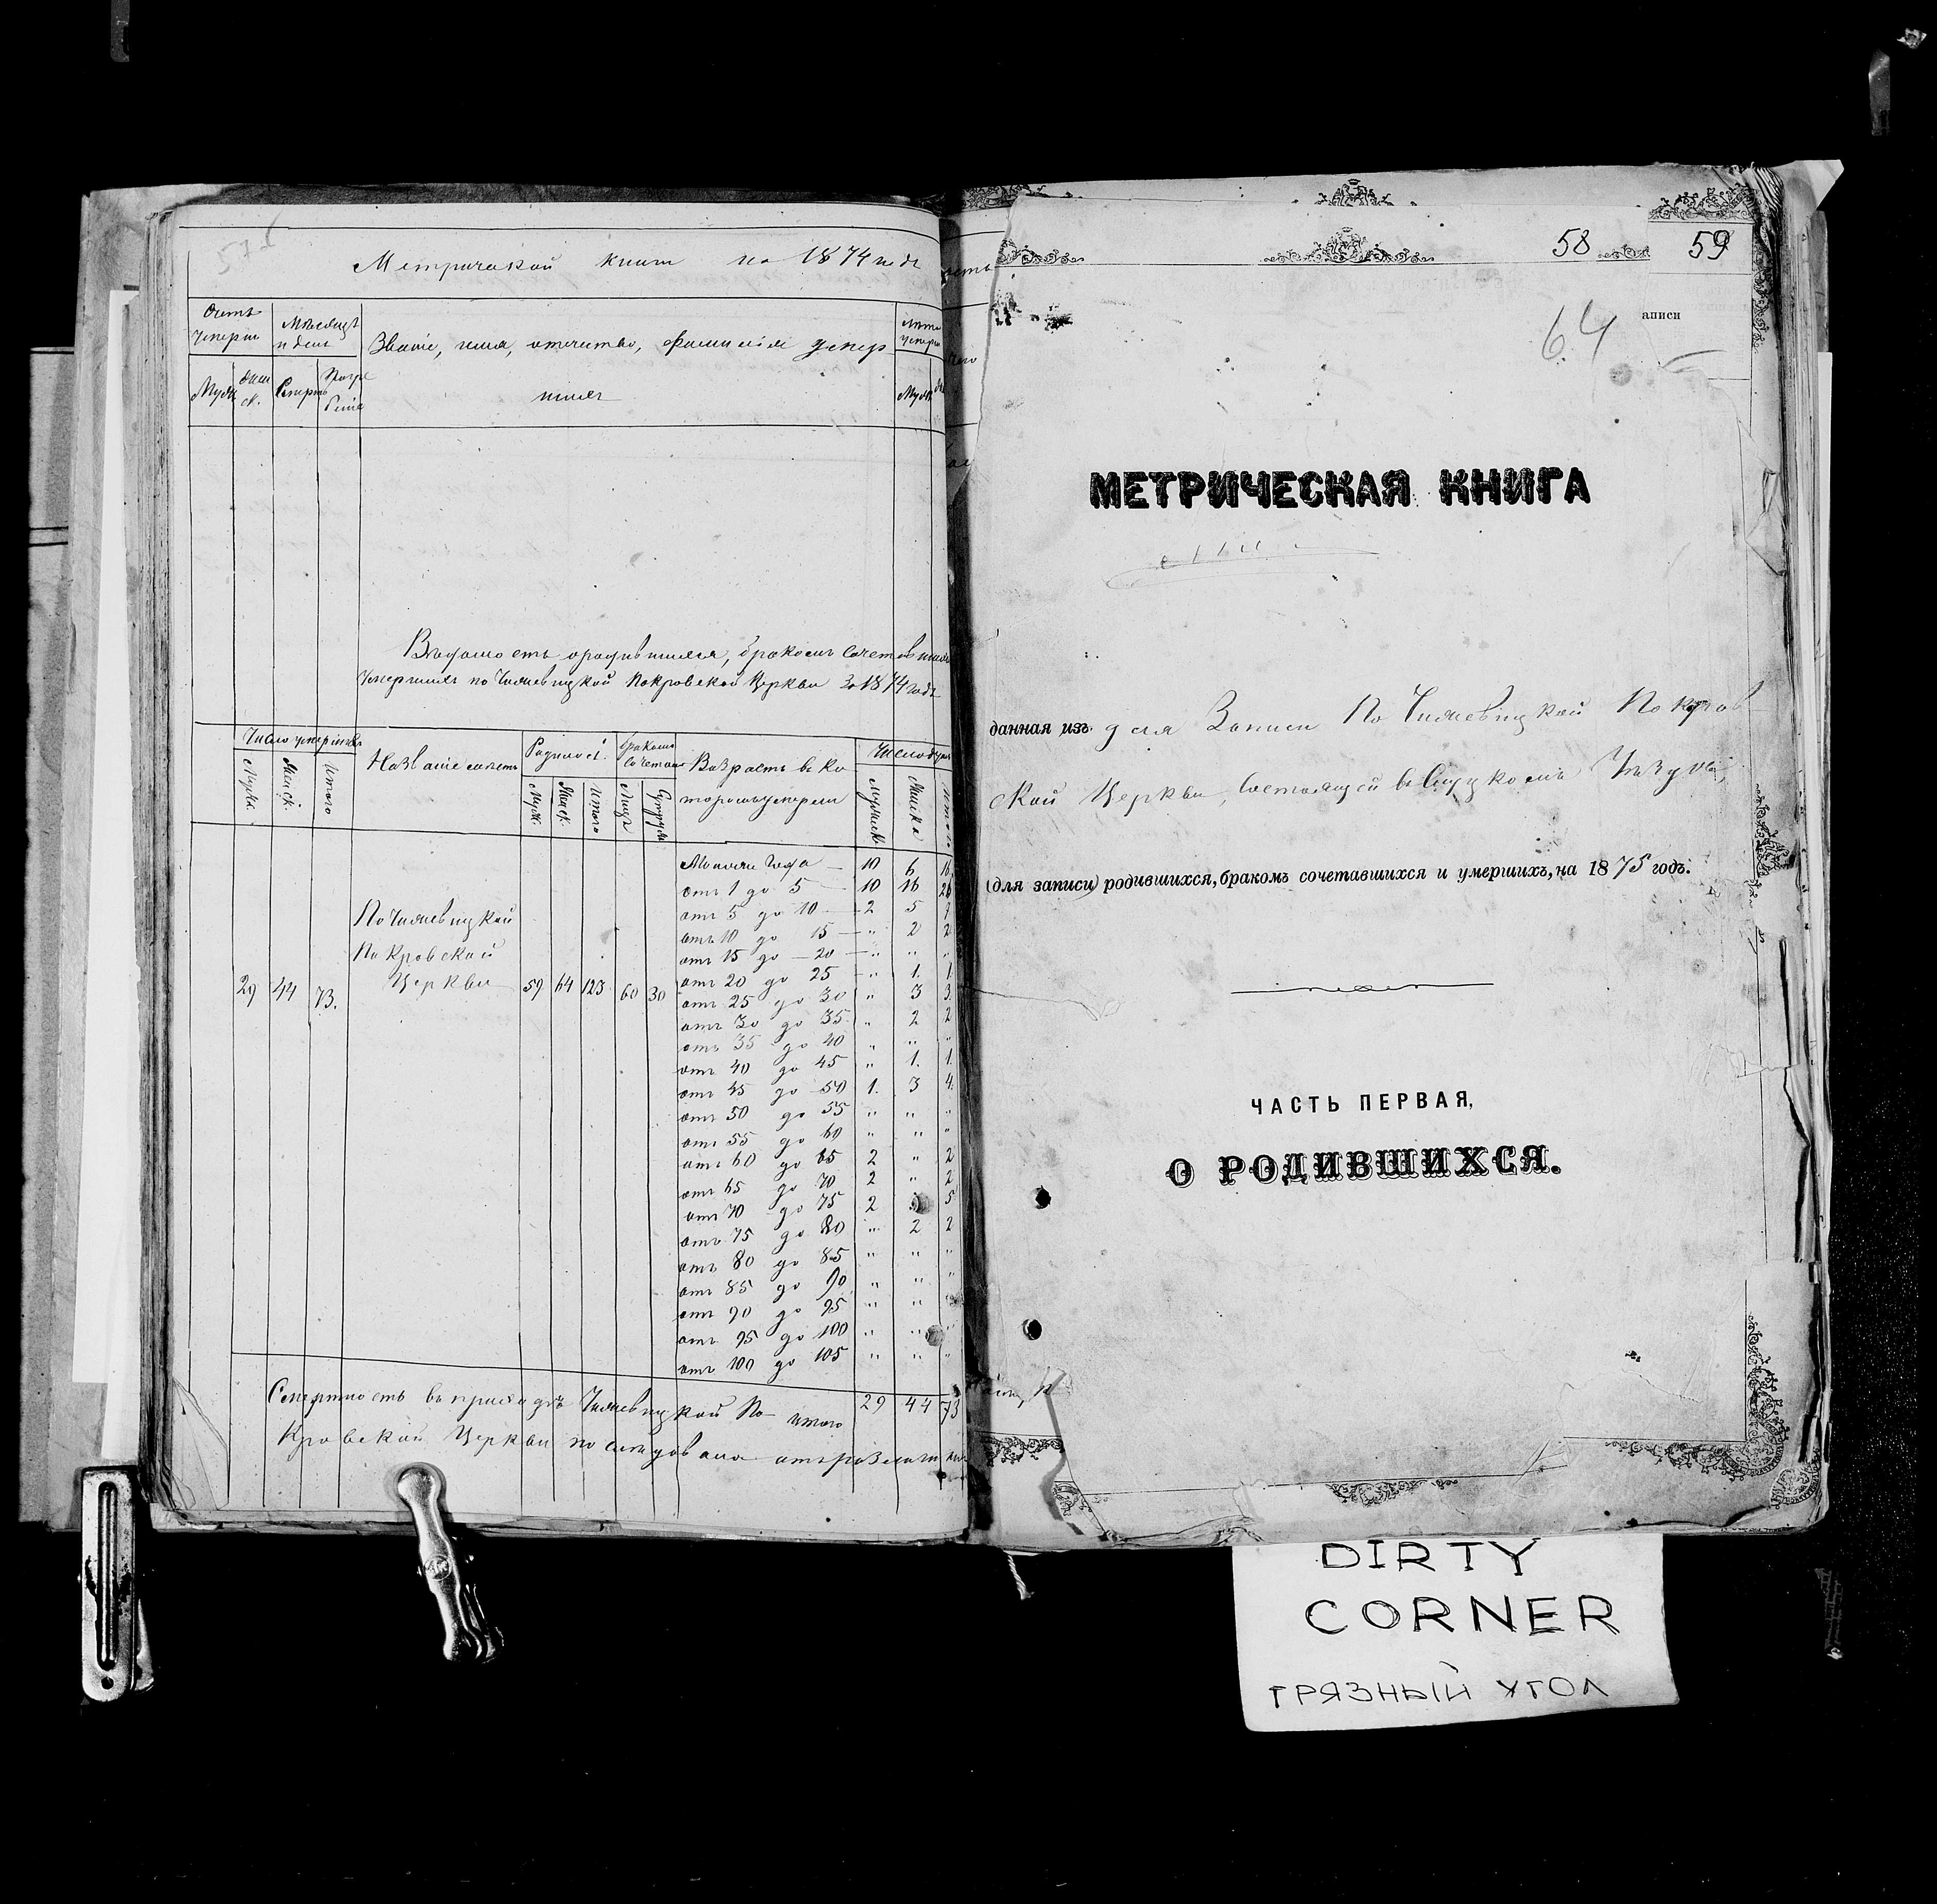 Метрической книги на 1874 годъ
Счетъ умершихъ
Мѣсяцъ и день
Званіе, имя, отчество, фамилія умер
шихъ
Лѣта умерш
Муж.
Жен
ск.
Смерти
Погре
бенія
Муж.
Вѣдомость о родившихся, бракомъ сочетавшихся
умершихъ по Чижевицкой Покровской Церкви за 1874 годъ
Число умершихъ
Названіе церкви
Родилось.
Бракомъ
сочеталось
Возрастъ въ ко
торомъ умерли
Число душъ
Мужск.
Женск.
Итого
Муж.
Женск.
Итого
Лицъ
Супруж
Мужеска
Женска
Итого
Менѣе Года — 10 6 16
отъ 1 до 5 — 10 16 26
отъ 5 до 10 — 2 5 7
отъ 10 до 15 — „ 2 2
отъ 15 до 20 — „ „ „
отъ 20 до 25 — „ 1. 1.
отъ 25 до 30 „ 3 3.
отъ 30 до 35 „ 2 2
отъ 35 до 40 „ „ „
отъ 40 до 45 „ 1. 1.
отъ 45 до 50 1. 3 4.
отъ 50 до 55 „ „ „
отъ 55 до 60 „ „ „
отъ 60 до 65 2 „ 2
отъ 65 до 70 2 „ 2
отъ 70 до 75 2 5
отъ 75 до 80 „ 2 2
отъ 80 до 85 „ „ „
отъ 85 до 90 „ „ „
отъ 90 до 95 „ „
отъ 95 до 100 „ „ „
отъ 100 до 105 „ „ „
По Чижевицкой
Покровской
Церкви
29 44 73. 59 64 123 60 30
итого 29 44 73
Смертность въ приходѣ Чижевицкой По-
кровской Церкви послѣдовала отъ различныхъ
58 59
аписи
64
МЕТРИЧЕСКАЯ КНИГА
данная изъ для Записи По Чижевицкой Покров
ской Церкви, состоящей въ Слуцкомъ Уѣздѣ,
(для записи) родившихся, бракомъ сочетавшихся и умершихъ, на 1875 годъ.
ЧАСТЬ ПЕРВАЯ,
О РОДИВШИХСЯ.
DIRTY
CORNER
ГРЯЗНЫЙ УГОЛ